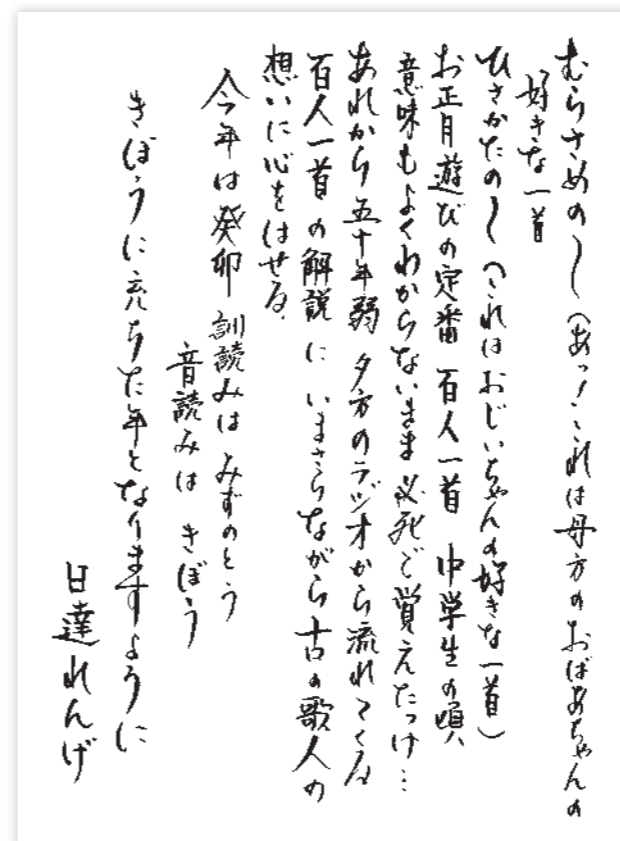 むらさめの〜（あっ！これは母方のおばあちゃんの
好きな一首
ひさかたの〜（これはおじいちゃんの好きな一首）
お正月遊びの定番 百人一首 中学生の頃
意味もよくわからないまま 必死で覚えたっけ…
あれから五十年弱 夕方のラジオから流れてくる
百人一首の解説に いまさらながら古の歌人の
想いに心をはせる。
今年は癸卯 訓読みは みずのとう
音読みは きぼう
きぼうに充ちた年となりますように
日達れんげ